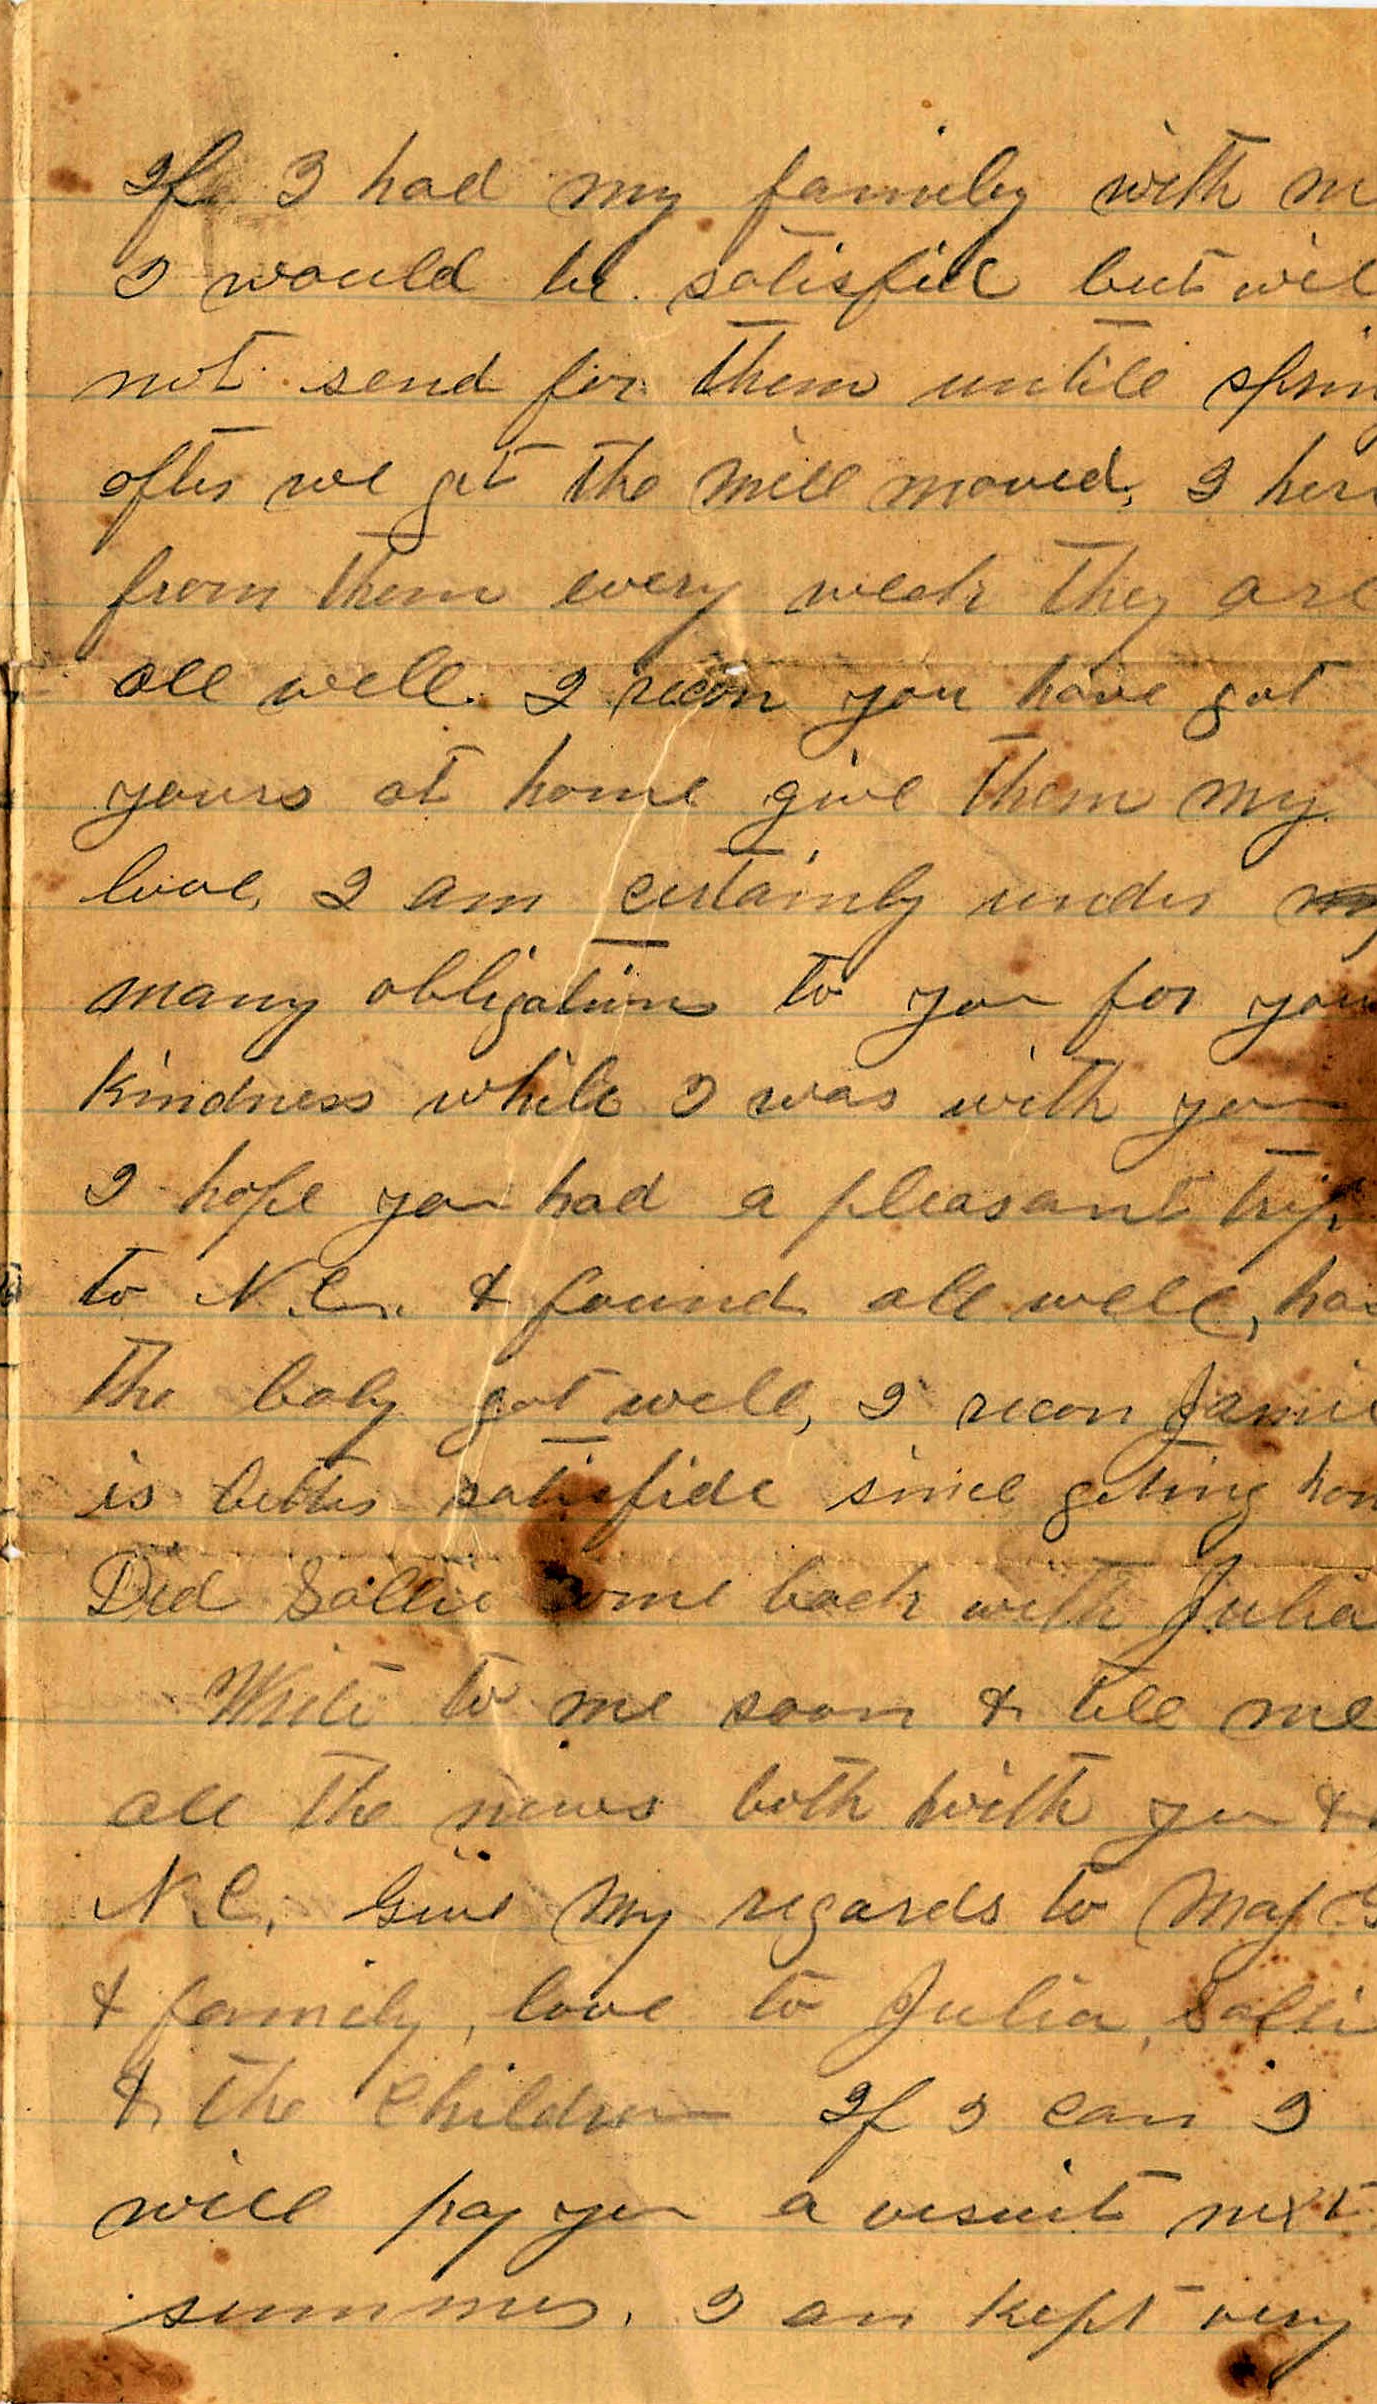 If I had my family with m
I would be satisfide but wil
not send for them untill sprin
after we get the mill moved, I her
from them every week they are
all well. I recon you have got
yours at home give them my
love, I am certainly under
many obligations to you for your
kindness while I was with you
I hope you had a pleasant trip
to N.C. & found all well, has
the baby got well, I recon Jamie
is better satisfide since geting hom
Did Sallie come back with Julia
Write to me soon & tell me
all the news both with you &
N.C. Give my regards to Maj G
& family, love to Julia, Salli
& the children If I can I
will pay you a visit next
summer. I am kept very